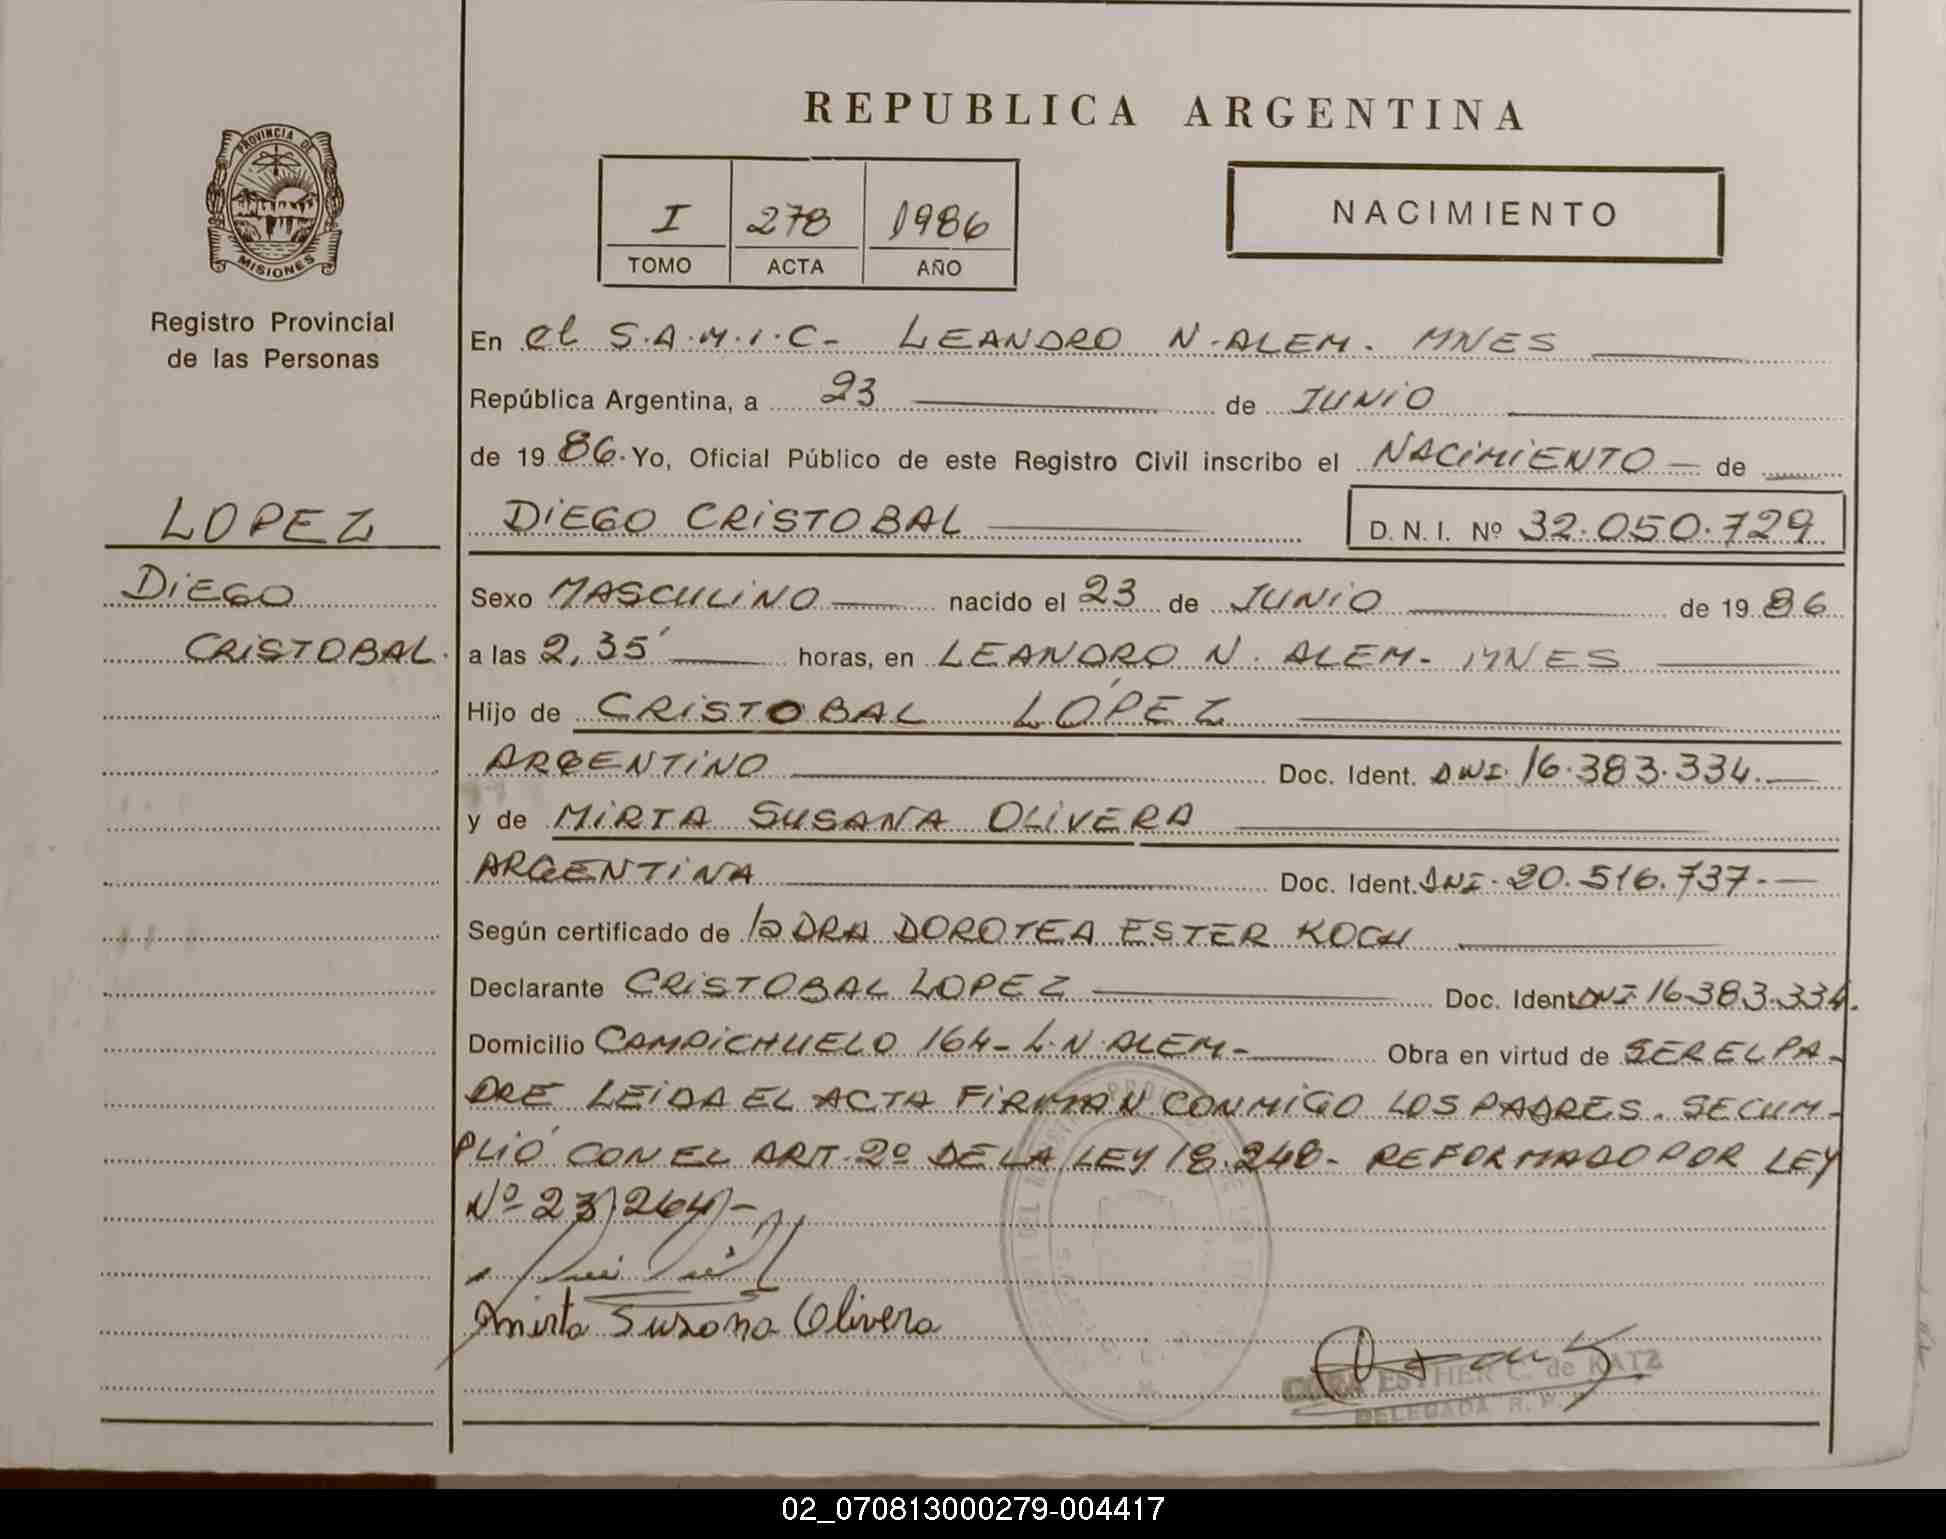 REPUBLICA ARGENTINA
PROVINCIA DE
MISIONES
Registro Provincial
de las Personas
I 278 1986
TOMO ACTA AÑO
NACIMIENTO
LOPEZ
DIEGO
CRISTOBAL.
En el S.A.M.I.C- LEANDRO N.ALEM. MNES
República Argentina, a 23 de JUNIO
de 1986. Yo, Oficial Público de este Registro Civil inscribo el NACIMIENTO - de
DIEGO CRISTOBAL D. N. I. Nº 32.050.729
Sexo MASCULINO nacido el 23 de JUNIO de 1986
a las 2,35' horas, en LEANDRO N. ALEM- MNES
Hijo de CRISTOBAL LÓPEZ
ARGENTINO Doc. Ident. DNI. 16.383.334.-
y de MIRTA SUSANA OLIVERA
ARGENTINA Doc. Ident. DNI. 20.516.737.-
Según certificado de la DRA DOROTEA ESTER KOCH
Declarante CRISTOBAL LOPEZ Doc. Ident DNI 16.383.334.
Domicilio CAMPICHUELO 164- L.N.ALEM- Obra en virtud de SER EL PA-
DRE LEIDA EL ACTA FIRMAN CONMIGO LOS PADRES. SE CUM-
PLIÓ CON EL ART. 2º DE LA LEY 18.248- REFORMADO POR LEY
Nº 23.264)-
Mirta Susana Olivera
CORA ESTHER C. de KATZ
DELEGADA R. P.
02_070813000279-004417